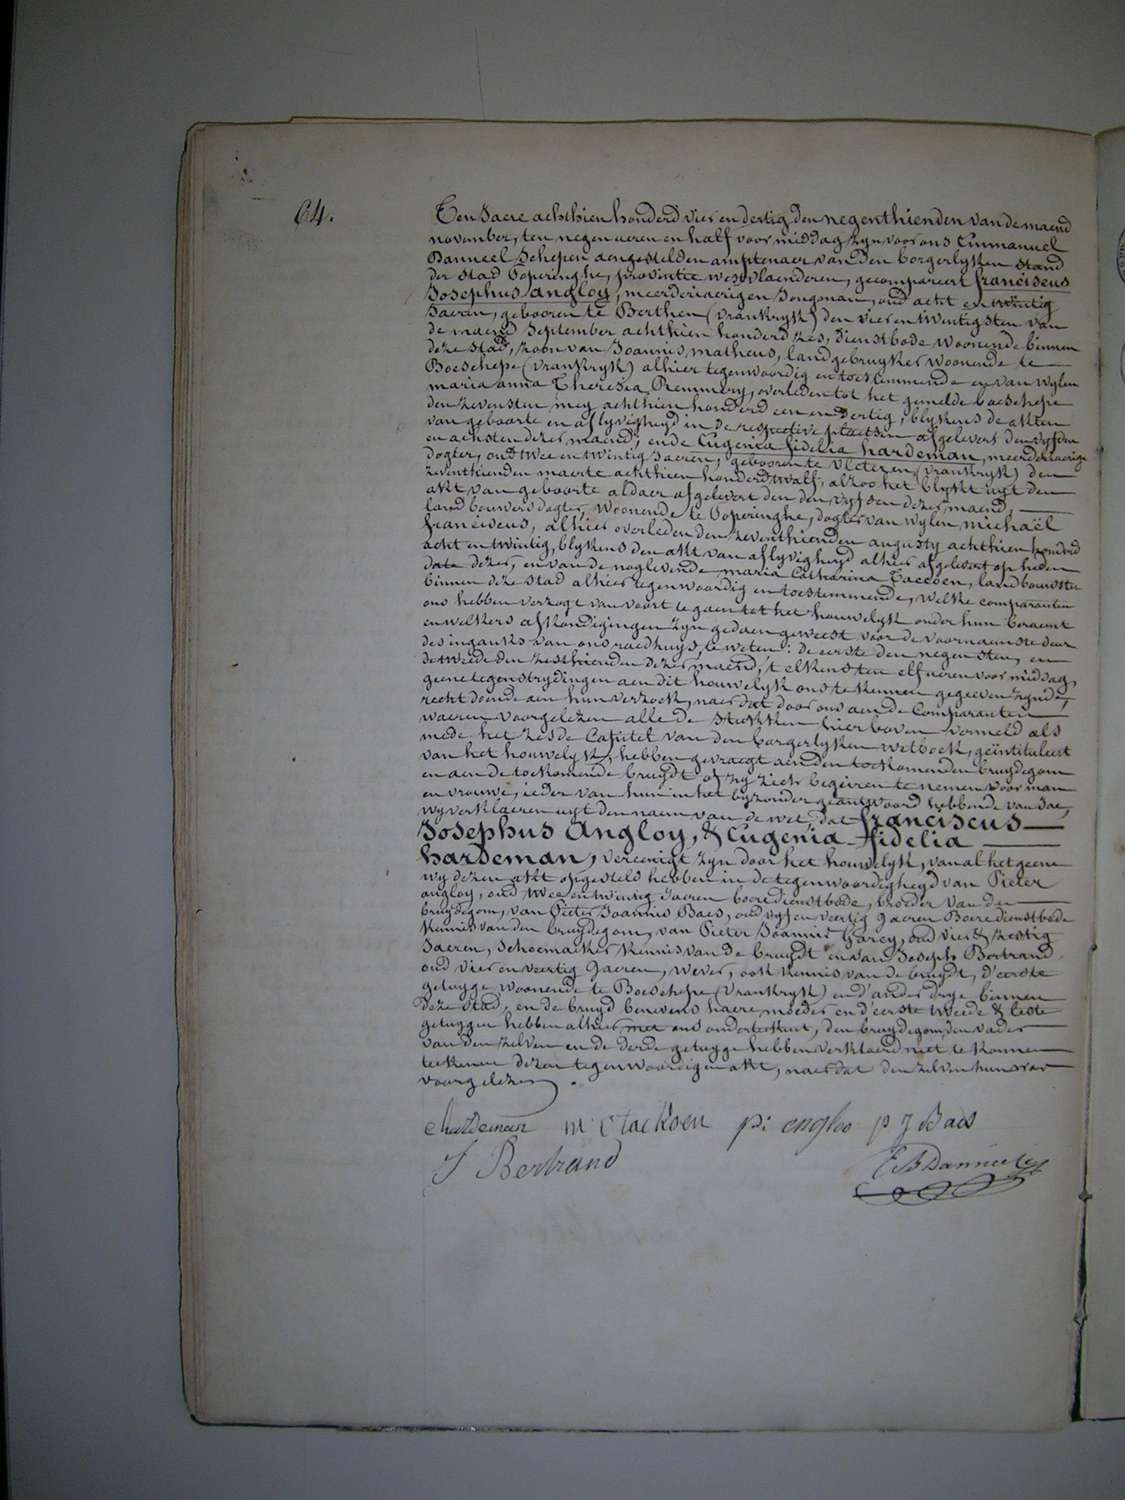 64.
Ten Jaere achthien honderd vier en dertig den negenthienden van de maend
november, ten negen ueren en half voor middag zyn voor ons Emmanuel
Danneel Schepen aengestelden amptenaer van den borgerlyken stand
der stad Poperinghe, provintie westvlaenderen, gecompareert franciscus
Josephus Angloy, meerderjaerigen Jongman, oud acht en twintig
Jaeren, gebooren te Berthen (vrankryk) den vier en twintigsten van
de maend September achthien honderd zes, dienstbode woonende binnen
deze stad, zoon van Joannis matheus, landgebruyker woonende te
Boeschepe (vrankryk) alhier tegenwoordig en toestemmende en van wylen
maria anna Theresia Premmery, overleden tot het gemelde boeschepe
den zevensten mey achthien honderd een en dertig, blykens de akten
van geboorte en aflyvigheyd in de respective plaetsen afgelevert den vyfden
en achsten dezer maend; ende Eugenia fidelia hardeman, meerderjaerige
dogter, oud twee en twintig Jaeren, gebooren te Vleteren (vrankryk) den
zeventhienden maerte achthien honderd twalf, alzoo het blykt uyt den
akt van geboorte aldaer afgelevert den den vyfden dezer maend,
landbouwers dogter, woonende te Poperinghe, dogter van wylen michaël
franciscus, alhier overleden den zeventhienden augusty achthien honderd
acht en twintig, blykens den akt van aflyvigheyd alhier afgelevert op heden
date dezer, en van de noglevende maria Catharina Taccoen, landbouwster
binnen deze stad alhier tegenwoordig en toestemmende, welke comparanten
ons hebben verzogt van voort te gaen tot het houwelyk onder hun beraemt
en welkers afkondigingen zyn gedaen geweest voor de voornaemste deur
des ingankx van ons raedhuys, te weten: de eerste den negensten, en
de tweede den zesthienden dezer maend, 't elkens ten elf ueren voor middag,
geene tegenstrydingen aen dit houwelyk ons te kennen gegeeven zynde,
recht doende aen hun verzoek, naer dat door ons aen de Comparanten
waeren voorgelezen alle de stukken hier boven vermeld als
mede het zesde Capittel van den borgerlyken wetboek, geïntituleert
van het houwelyk, hebben gevraegt aen den toekomenden bruydegom
en aen de toekomende bruydt of zy zich begeiren te nemen voor man
en vrouwe, ieder van hun in het byzonder geantwoord hebbende van Jae,
wy verklaeren uyt den naem van de wet, dat franciscus
Josephus Angloy, & Eugenia fidelia
hardeman, vereenigt zyn door het houwelyk, van al het geene
wy dezen akt opgesteld hebben in de tegenwoordigheyd van Pieter
angloy, oud twee en twintig Jaeren boeredienstbode, broeder van den
bruydegom, van Pieter Joannis Baes, oud vyf en veertig Jaeren Boeredienstbode
kennis van den bruydegom, van Pieter Joannis Garey, oud vier & zestig
Jaeren, schoemaeker kennis van de bruydt en van Joseph Bertrand
oud vier en veertig Jaeren, wever, ook kennis van de bruydt, d'eerste
getuyge woonende te Boeschepe (vrankryk) en d'ander drye binnen
deze stad, en de bruyd benevens haere moeder en d'eerste tweede & leste
getuygen hebben alhier met ons onderteekent, den bruydegom, den vader
van den zelven en de derde getuyge hebben verklaerd niet te konnen
teekenen dezen tegenwoordigen akt, naer dat den zelven hun was
voorgelezen.
e hardeman m c tackoen p: engloo p J Baes
J Bertrand E B Danneel